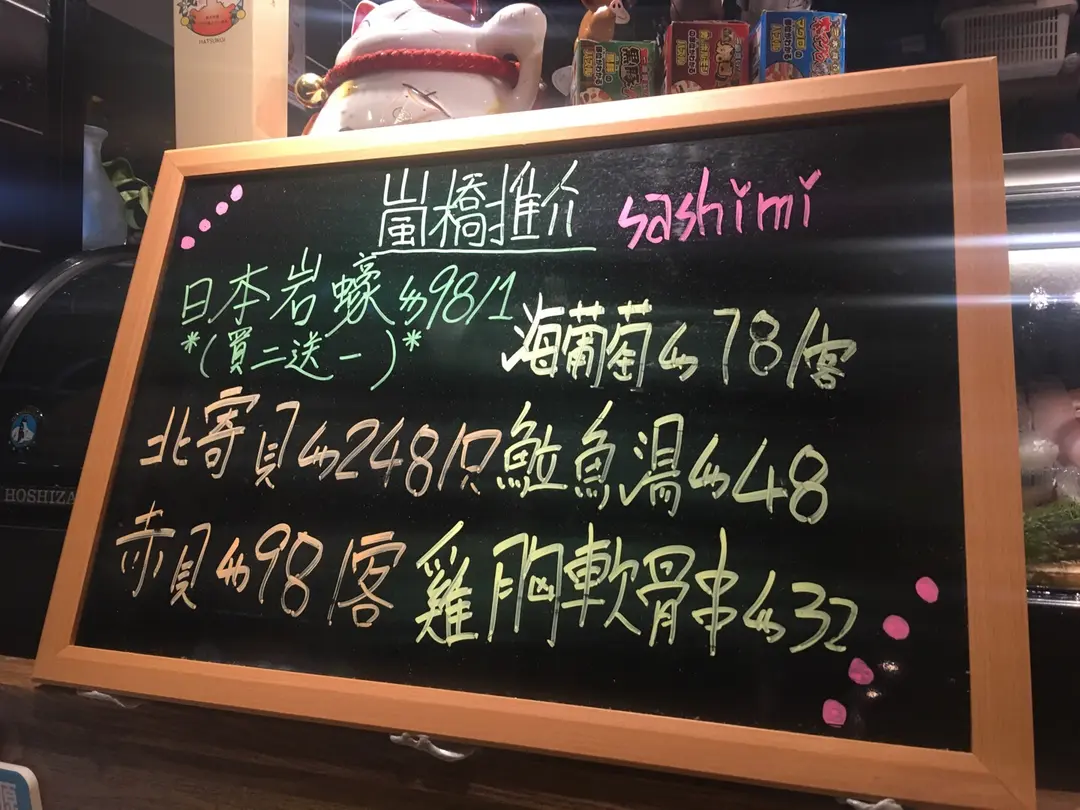 嵐橋推介 sashimi
日本岩蠔$98/1
*(買二送一)*
海葡萄$78/客
北寄貝$248/只
魚湯$48
赤貝$98/客
雞胸軟骨串$32
HOSHIZA